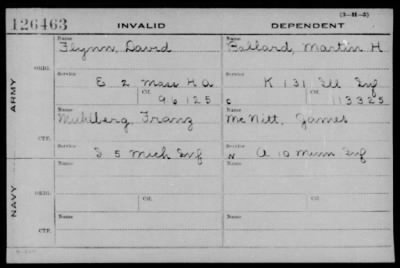 (3-111-3)
126463 INVALID DEPENDENT
Name Name
Flynn, David Ballard, Martin H
ORIG.
Service Service
E 2 Mass H A K 131 Ill Inf
Ctf. Ctf.
96125 C 113325
ARMY
Name Name
Muhlberg, Franz McNitt, James
CTF.
Service Service
I 5 Mich Inf N A 10 Minn Inf
NAVY
Name Name
ORIG.
Service Ctf. Service Ctf.
Name Name
CTF.
Service Service